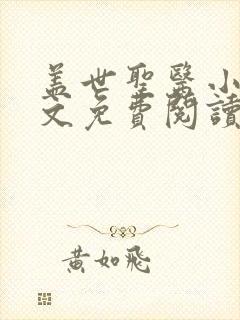 盖世聖醫小
文免費閱讀
黃如飛